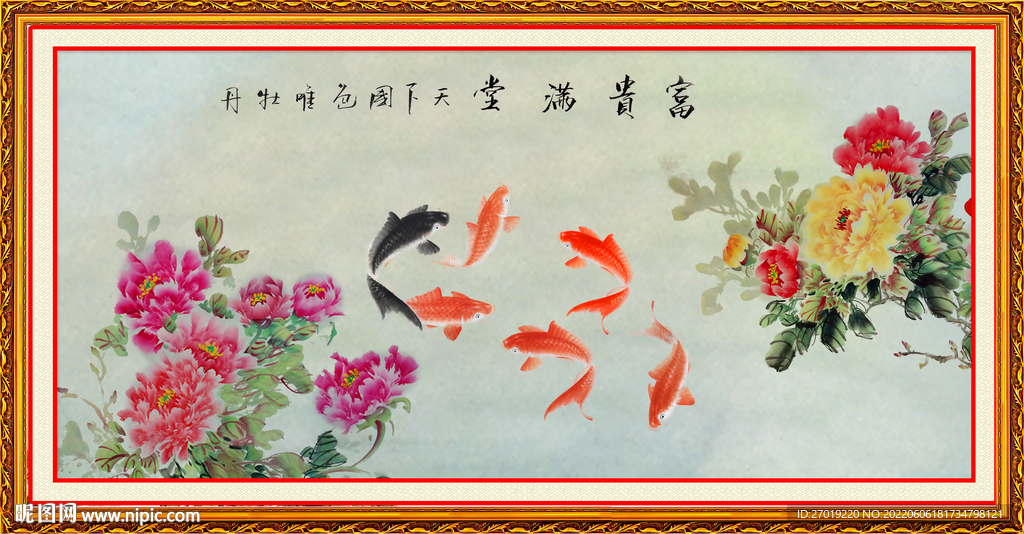 富貴滿堂天下國色唯牡丹
昵图网 www.nipic.com
ID:27019220 NO:20220606181734798121